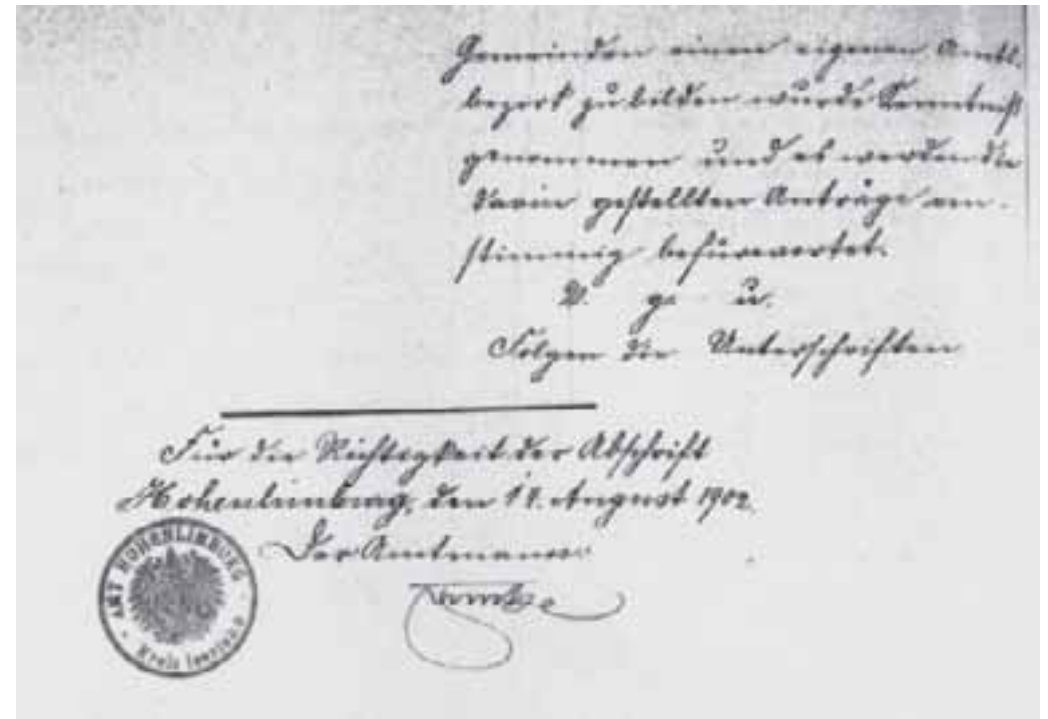 Gemeinden einen eigenen Amts-
bezirk zu bilden wurde Kenntniß
genommen und es werden die
darin gestellten Anträge ein-
stimmig befürwortet.
V. g. u.
Folgen die Unterschriften
Für die Richtigkeit der Abschrift
Hohenlimburg, den 14. August 1902.
Der Amtmann.
AMT HOHENLIMBURG
Kreis Iserlohn